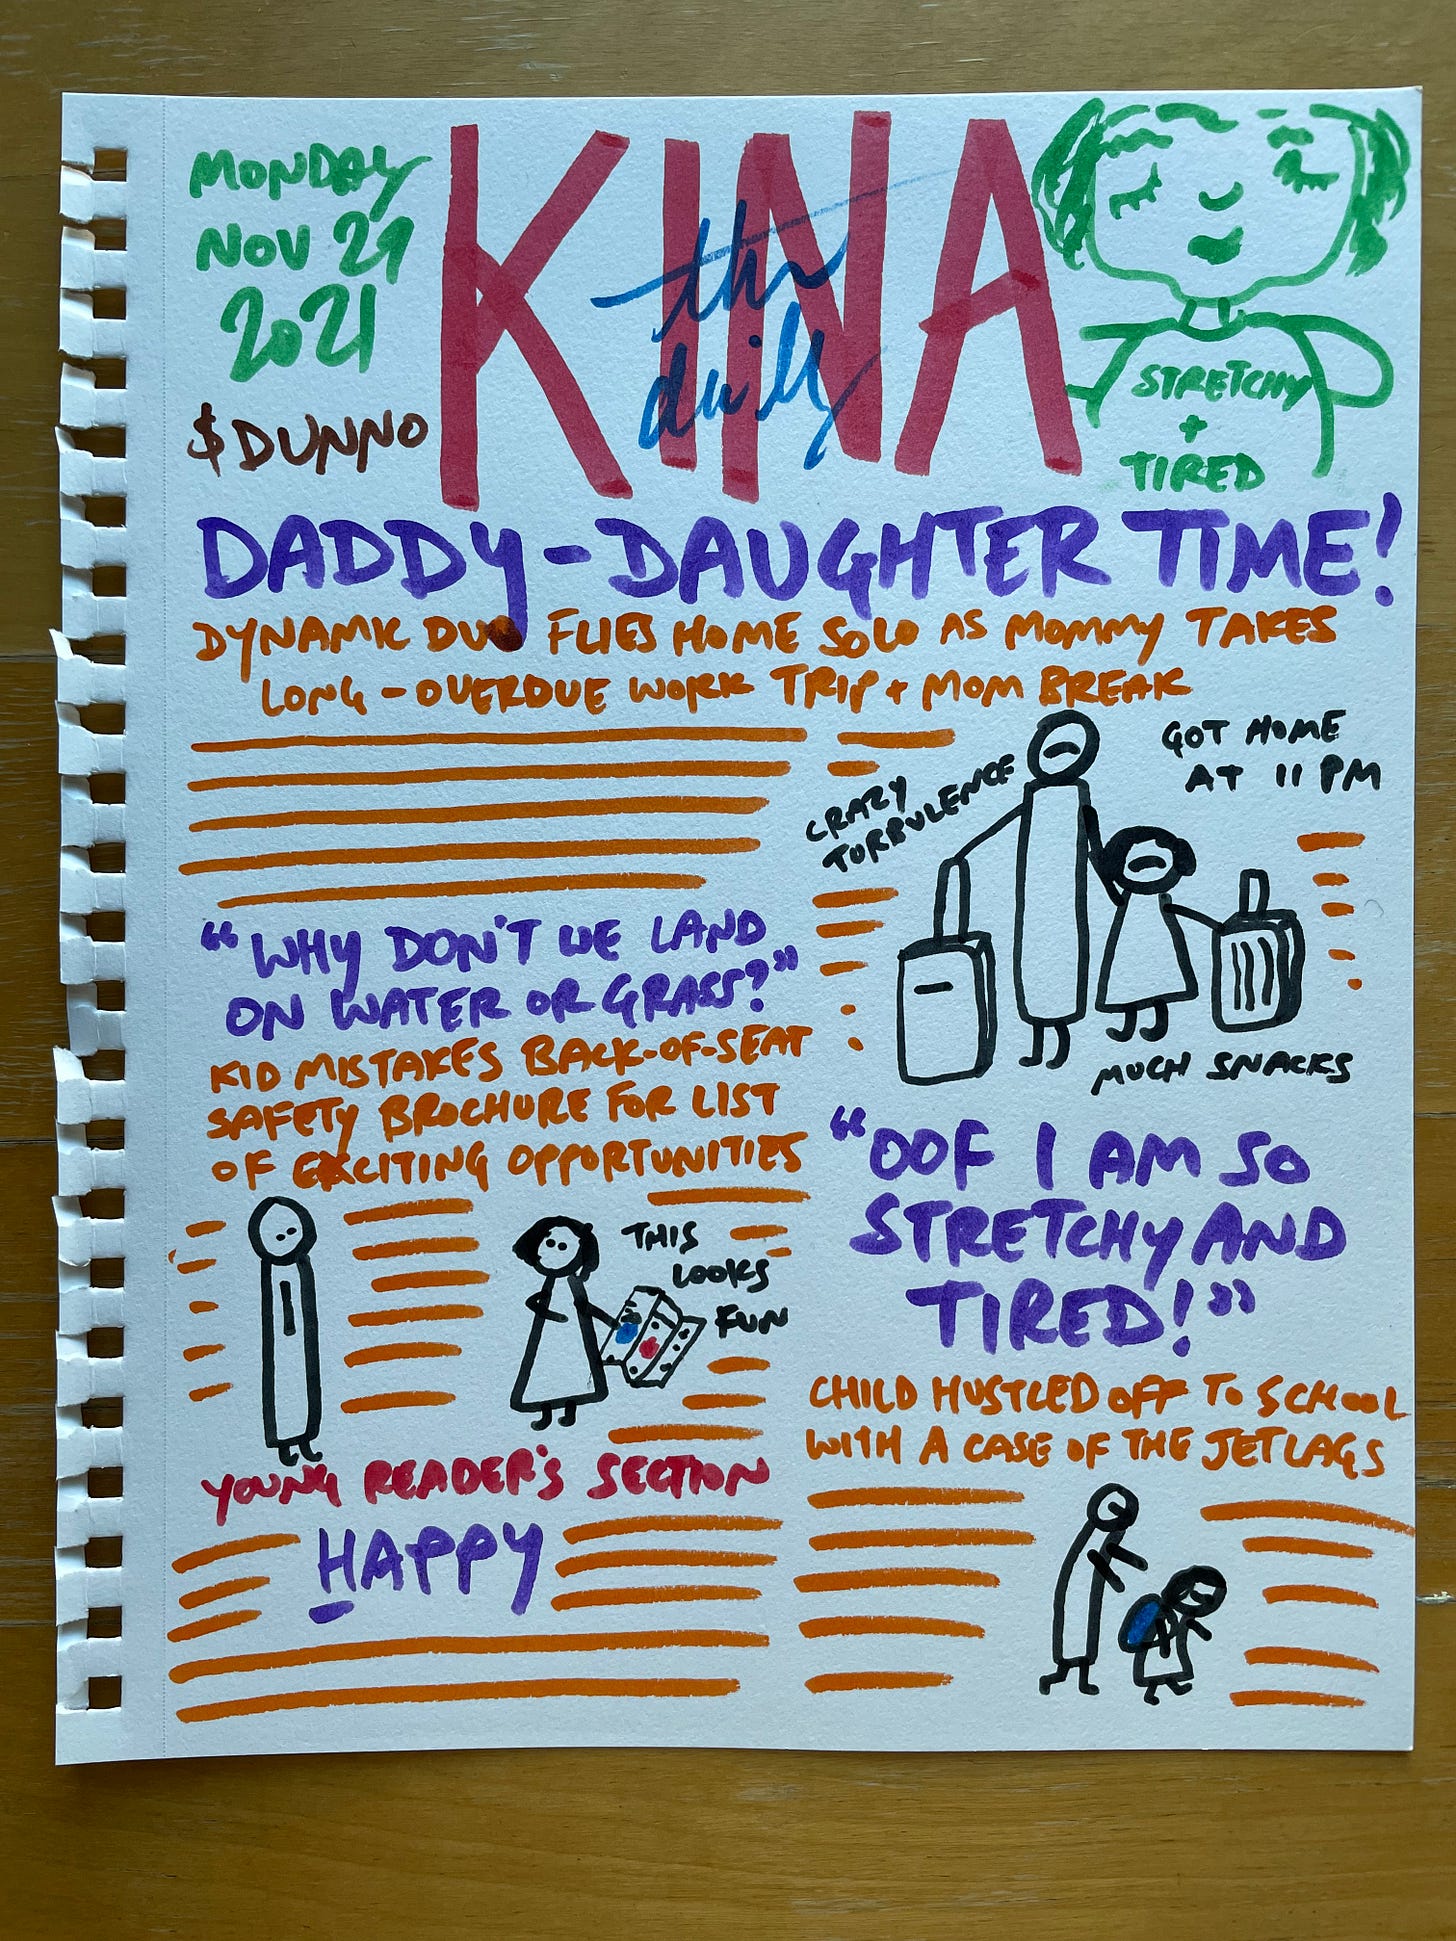 MONDAY
NOV 29
2021
$DUNNO
KINA
the
daily
STRETCHY
+
TIRED
DADDY-DAUGHTER TIME!
DYNAMIC DUO FLIES HOME SOLO AS MOMMY TAKES
LONG-OVERDUE WORK TRIP + MOM BREAK
CRAZY
TURBULENCE
GOT HOME
AT 11 PM
MUCH SNACKS
"WHY DON'T WE LAND
ON WATER OR GRASS?"
KID MISTAKES BACK-OF-SEAT
SAFETY BROCHURE FOR LIST
OF EXCITING OPPORTUNITIES
THIS
LOOKS
FUN
"OOF I AM SO
STRETCHY AND
TIRED!"
CHILD HUSTLED OFF TO SCHOOL
WITH A CASE OF THE JETLAGS
YOUNG READER'S SECTION
HAPPY